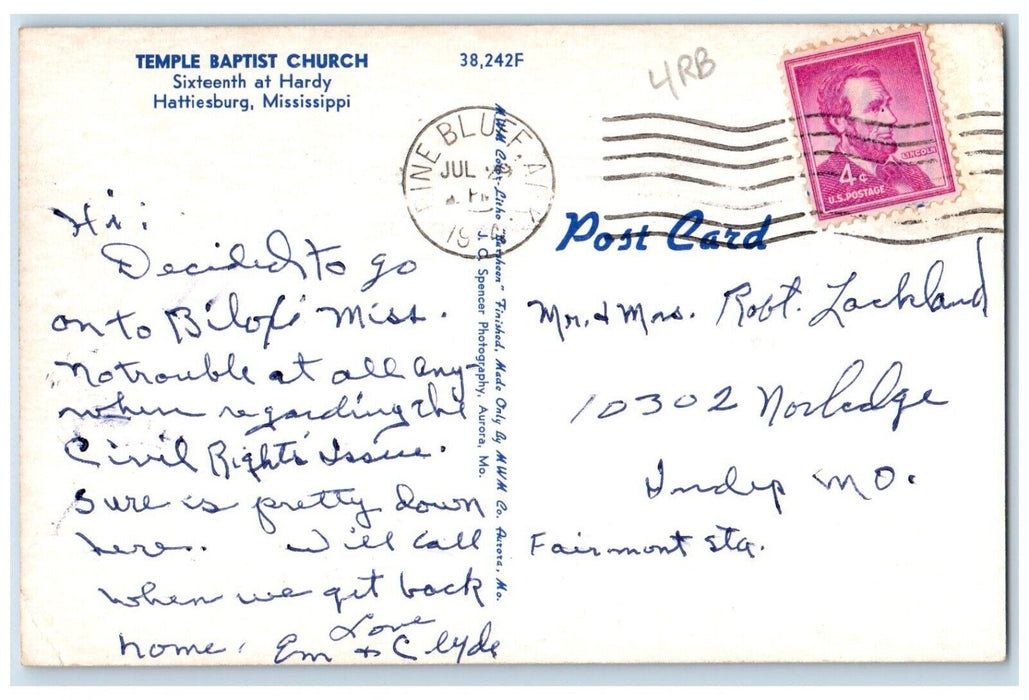 TEMPLE BAPTIST CHURCH
Sixteenth at Hardy
Hattiesburg, Mississippi
38,242F
4RB
PINE BLUFF, ARK
JUL
PM
19
LINCOLN
4¢
U.S. POSTAGE
Post Card
MWM Color-Litho "Finished, Made Only By MWM Co. Aurora, Mo.
J. C. Spencer Photography, Aurora, Mo.
Hi:
Decided to go
on to Biloxi Miss.
No trouble at all any-
where regarding the
Civil Rights Issue.
Sure is pretty down
here. Will call
when we get back
home. Love
Em & Clyde
Mr. & Mrs. Robt. Lockland
10302 Norledge
Indep MO.
Fairmont Sta.